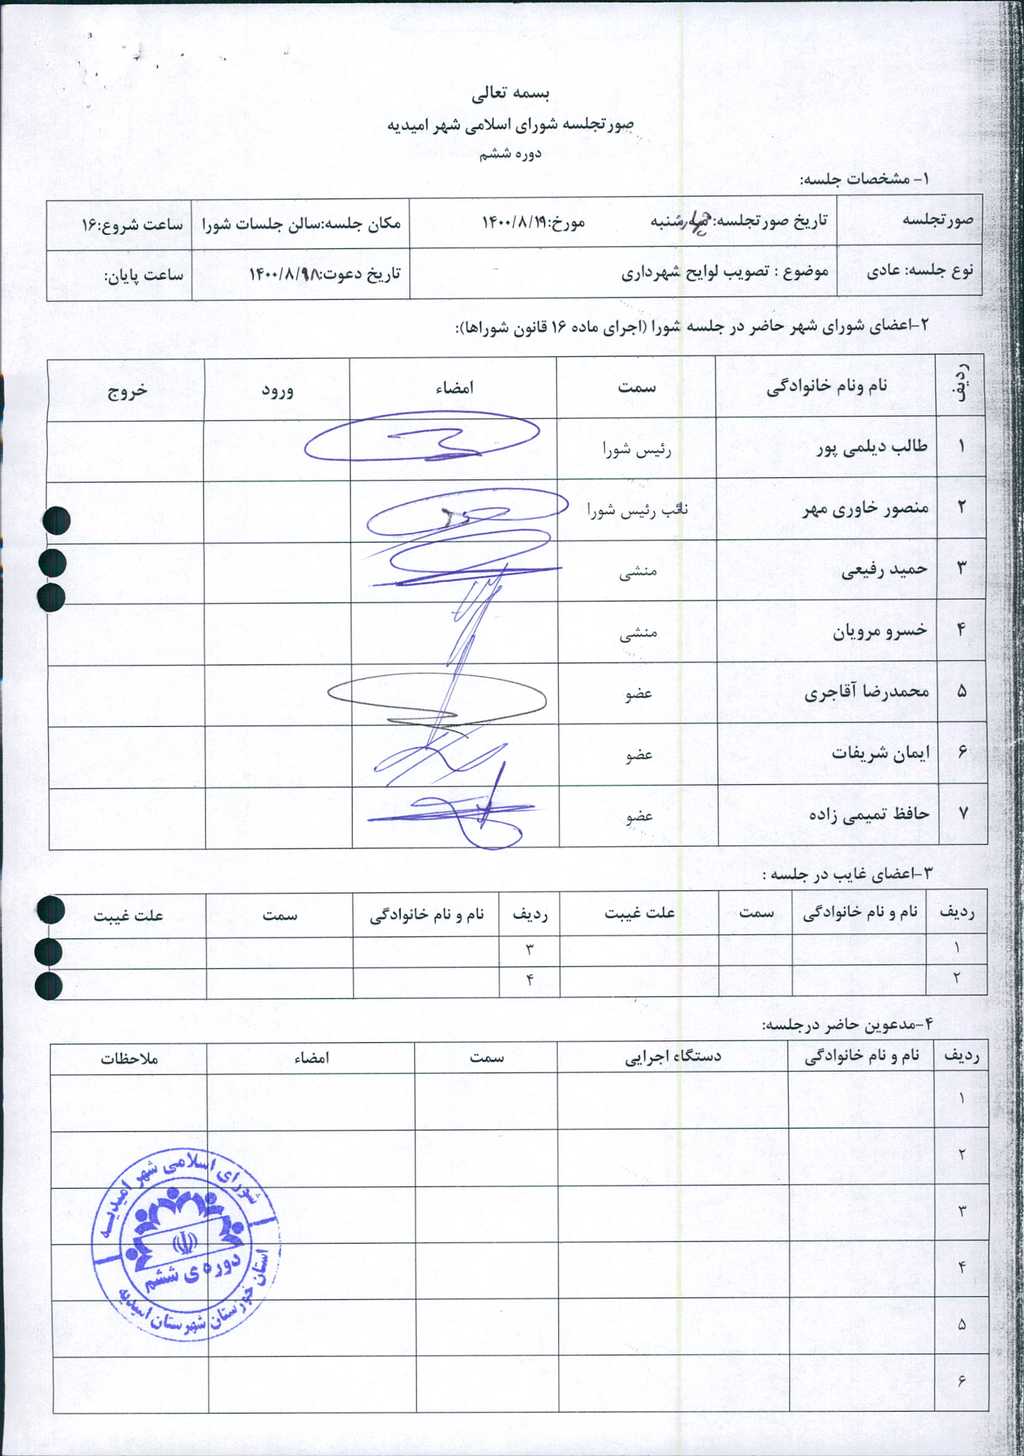 بسمه تعالی
صورتجلسه شورای اسلامی شهر امیدیه
دوره ششم
۱- مشخصات جلسه:
صورتجلسه تاریخ صورتجلسه: شنبه مورخ:۱۴۰۰/۸/۱۹ مکان جلسه:سالن جلسات شورا ساعت شروع:۱۶
نوع جلسه: عادی موضوع : تصویب لوایح شهرداری تاریخ دعوت:۱۴۰۰/۸/ ساعت پایان:
۲-اعضای شورای شهر حاضر در جلسه شورا (اجرای ماده ۱۶ قانون شوراها):
ردیف نام ونام خانوادگی سمت امضاء ورود خروج
۱ طالب دیلمی پور رئیس شورا
۲ منصور خاوری مهر نائب رئیس شورا
۳ حمید رفیعی منشی
۴ خسرو مرویان منشی
۵ محمدرضا آقاجری عضو
۶ ایمان شریفات عضو
۷ حافظ تمیمی زاده عضو
۳-اعضای غایب در جلسه :
ردیف نام و نام خانوادگی سمت علت غیبت ردیف نام و نام خانوادگی سمت علت غیبت
۱ ۳
۲ ۴
۴-مدعوین حاضر درجلسه:
ردیف نام و نام خانوادگی دستگاه اجرایی سمت امضاء ملاحظات
۱
۲
۳
۴
۵
۶
شورای اسلامی شهر امیدیه
دوره ی ششم
استان خوزستان شهرستان امیدیه